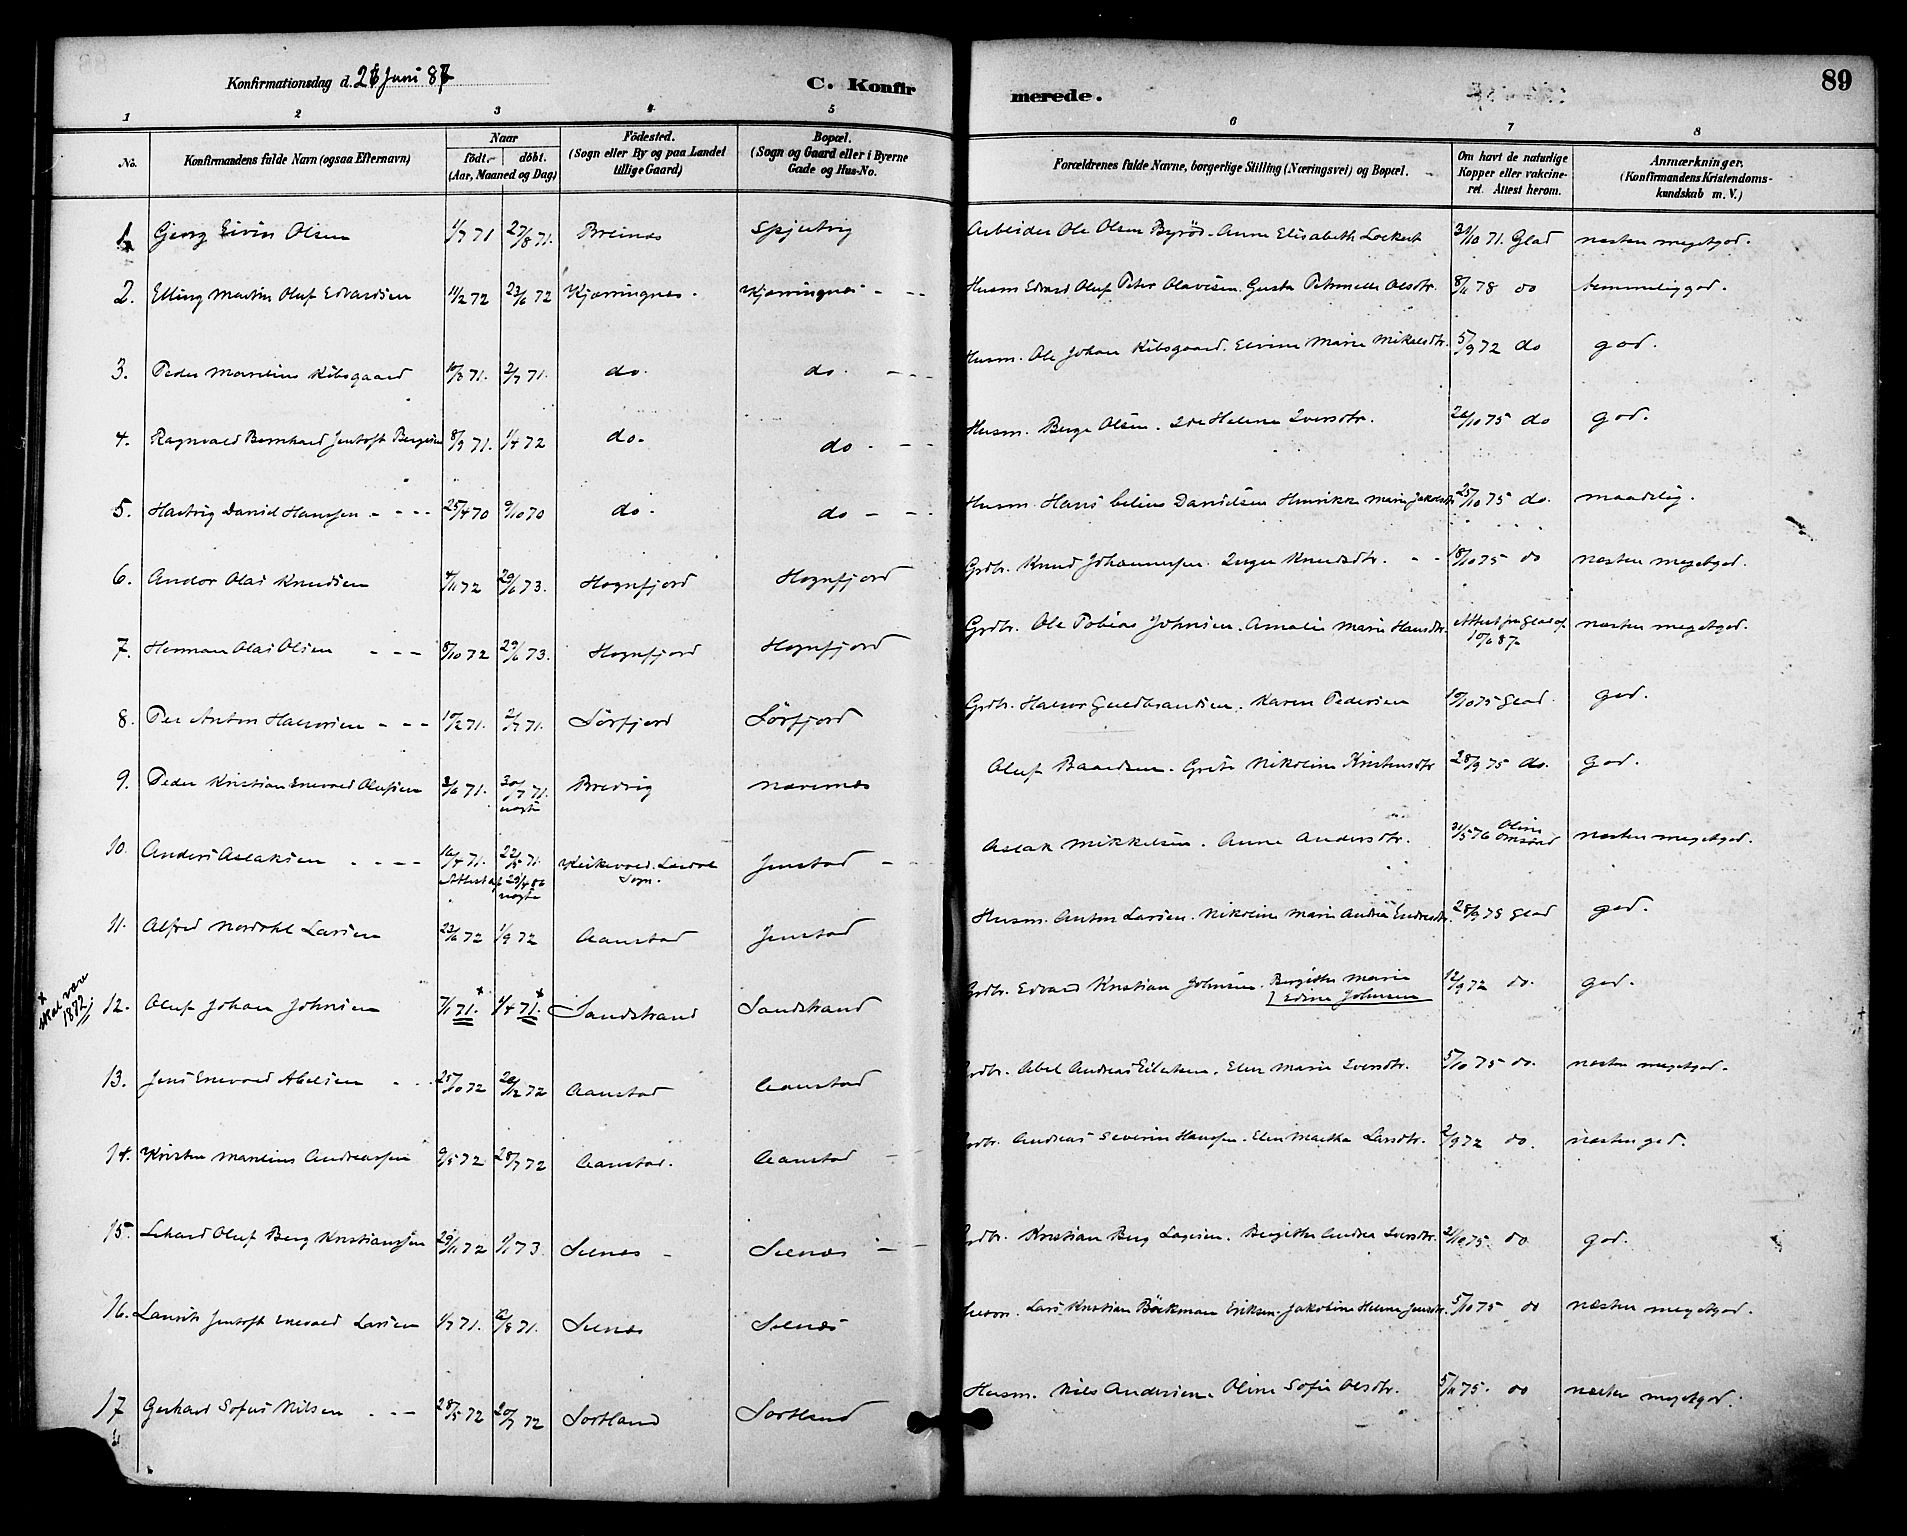 Konfirmationsdag d. 26 Juni 87
C. Konfirmerede.
89
1 2 3 4 5 6 7 8
No.
Konfirmandens fulde Navn (ogsaa Efternavn)
Naar
født. døbt.
(Aar, Maaned og Dag)
Fødested.
(Sogn eller By og paa Landet
tillige Gaard)
Bopæl.
(Sogn og Gaard eller i Byerne
Gade og Hus-No.
Forældrenes fulde Navne, borgerlige Stilling (Næringsvei) og Bopæl.
Om havt de naturlige
Kopper eller vakcine-
ret. Attest herom.
Anmærkninger.
(Konfirmandens Kristendoms-
kundskab m. V.)
1. Georg Eivin Olsen 1/7 71 27/8 71. Breines Spjutvig Arbeider Ole Olsen Byrøs. Anne Elisabeth Lockert 31/10 71. Glad næsten megetgod.
2. Elling Martin Oluf Edvardsen 11/2 72 23/6 72 Kjærringnes. Kjærringnes Husm Edvard Oluf Peter Olavisen. Gusta Petronelle Olsdtr. 8/11 78 do temmeliggod.
3. Peder Marelius Kibsgaard 10/3 71. 2/7 71. do. do. Husm. Ole Johan Kibsgaard. Elvine Marie Mikelsdtr. 5/9 72 do god.
4. Ragnvald Bernhard Jentoft Bergesen 8/9 71. 1/4 72 do. do. Husm. Berge Olsen. Ide Helene Iversdtr. 26/10 75 do god.
5. Hartvig Daniel Hanssen 25/4 70 9/10 70 do. do Husm. Hans Celius Danielsen Henrikke Marie Jakobsdtr 25/10 75 do. maadelig.
6. Andor Olai Knudsen 4/11 72 29/6 73. Hognfjord Hognfjord Grdbr. Knud Johannessen. Inger Knudsdtr. 18/10 75 do næsten megetgod.
7. Herman Olai Olsen 8/10 72 29/6 73. Hognfjord Hognfjord Grdbr. Ole Tobias Johnsen. Amalie Marie Hansdtr. Attest fra Glad af 10/6 87 næsten megetgod.
8. Per Anton Halvorsen 10/2 71. 2/7 71. Sörfjord Sörfjord Grdbr. Halvor Guldbrandsen. Karen Pedersen 10/10 75 Glad. god.
9. Peder Kristian Enevold Olufsen 3/6 71. 30/7 71. Bredvig Nævernes Oluf Baardsen. Grete Nikoline Kristensdtr 28/9 75 do. god.
10. Anders Aslaksen 16/4 71. 22/5 71. Sogn. Jenstad Aslak Mikkelsen. Anne Andersdtr. 31/5 76 Oline næsten megetgod.
Attest af 29/4 86
11. Alfred Nordahl Larsen 23/6 72 1/9 72 Aanstad Jenstad Husm. Anton Larsen. Nikoline Marie Andrea Endresdtr. 28/9 78 Glad god.
x skal være 1872
12. Oluf Johan Johnsen 7/1 71.x 1/4 71.x Sandstrand Sandstrand Grdbr. Edvard Kristian Johnsen. Bergitte Marie
Edvine Johnsen 12/9 72 do. god.
13. Jens Enevold Abelsen 25/10 72 26/12 72 Aanstad Aanstad Grdbr. Abel Andreas Eilertsen. Elen Marie Iversdtr. 5/10 75 do. næsten megetgod.
14. Kristen Marelius Andreassen 9/5 72 28/7 72 Aanstad. Aanstad Grdbr. Andreas Severin Hanssen. Elen Martha Larsdtr. 2/9 72 do. næsten god.
15. Lehard Oluf Berg Kristianssen 29/11 72 1/1 73. Selnæs Selnæs Grdbr. Kristian Berg Lagesen. Bergitte Andrea Iversdtr. 21/10 75. do god.
16. Laurits Jentoft Enevold Larsen 1/7 71. 6/8 71. Selnæs Selnæs Lars Kristian Böckman Eriksen. Jakobine Helene Jensdtr. 5/10 75 do næsten megetgod.
17 Gerhard Sofus Nilsen 28/5 72 20/7 72 Sortland Sortland Husm. Nils Andersen. Oline Sofie Olsdtr. 5/11 75. do næsten megetgod.